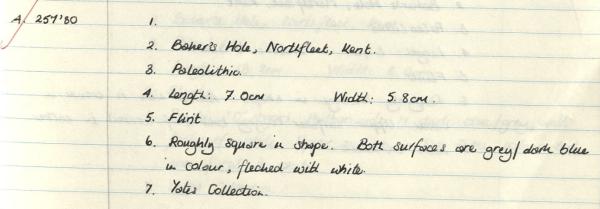 A. 257'80 1.
2. Baker's Hole, Northfleet, Kent.
3. Paleolithic.
4. Length: 7.0cm Width: 5.8cm.
5. Flint
6. Roughly square in shape. Both surfaces are grey/dark blue
in colour, flecked with white.
7. Yates Collection.